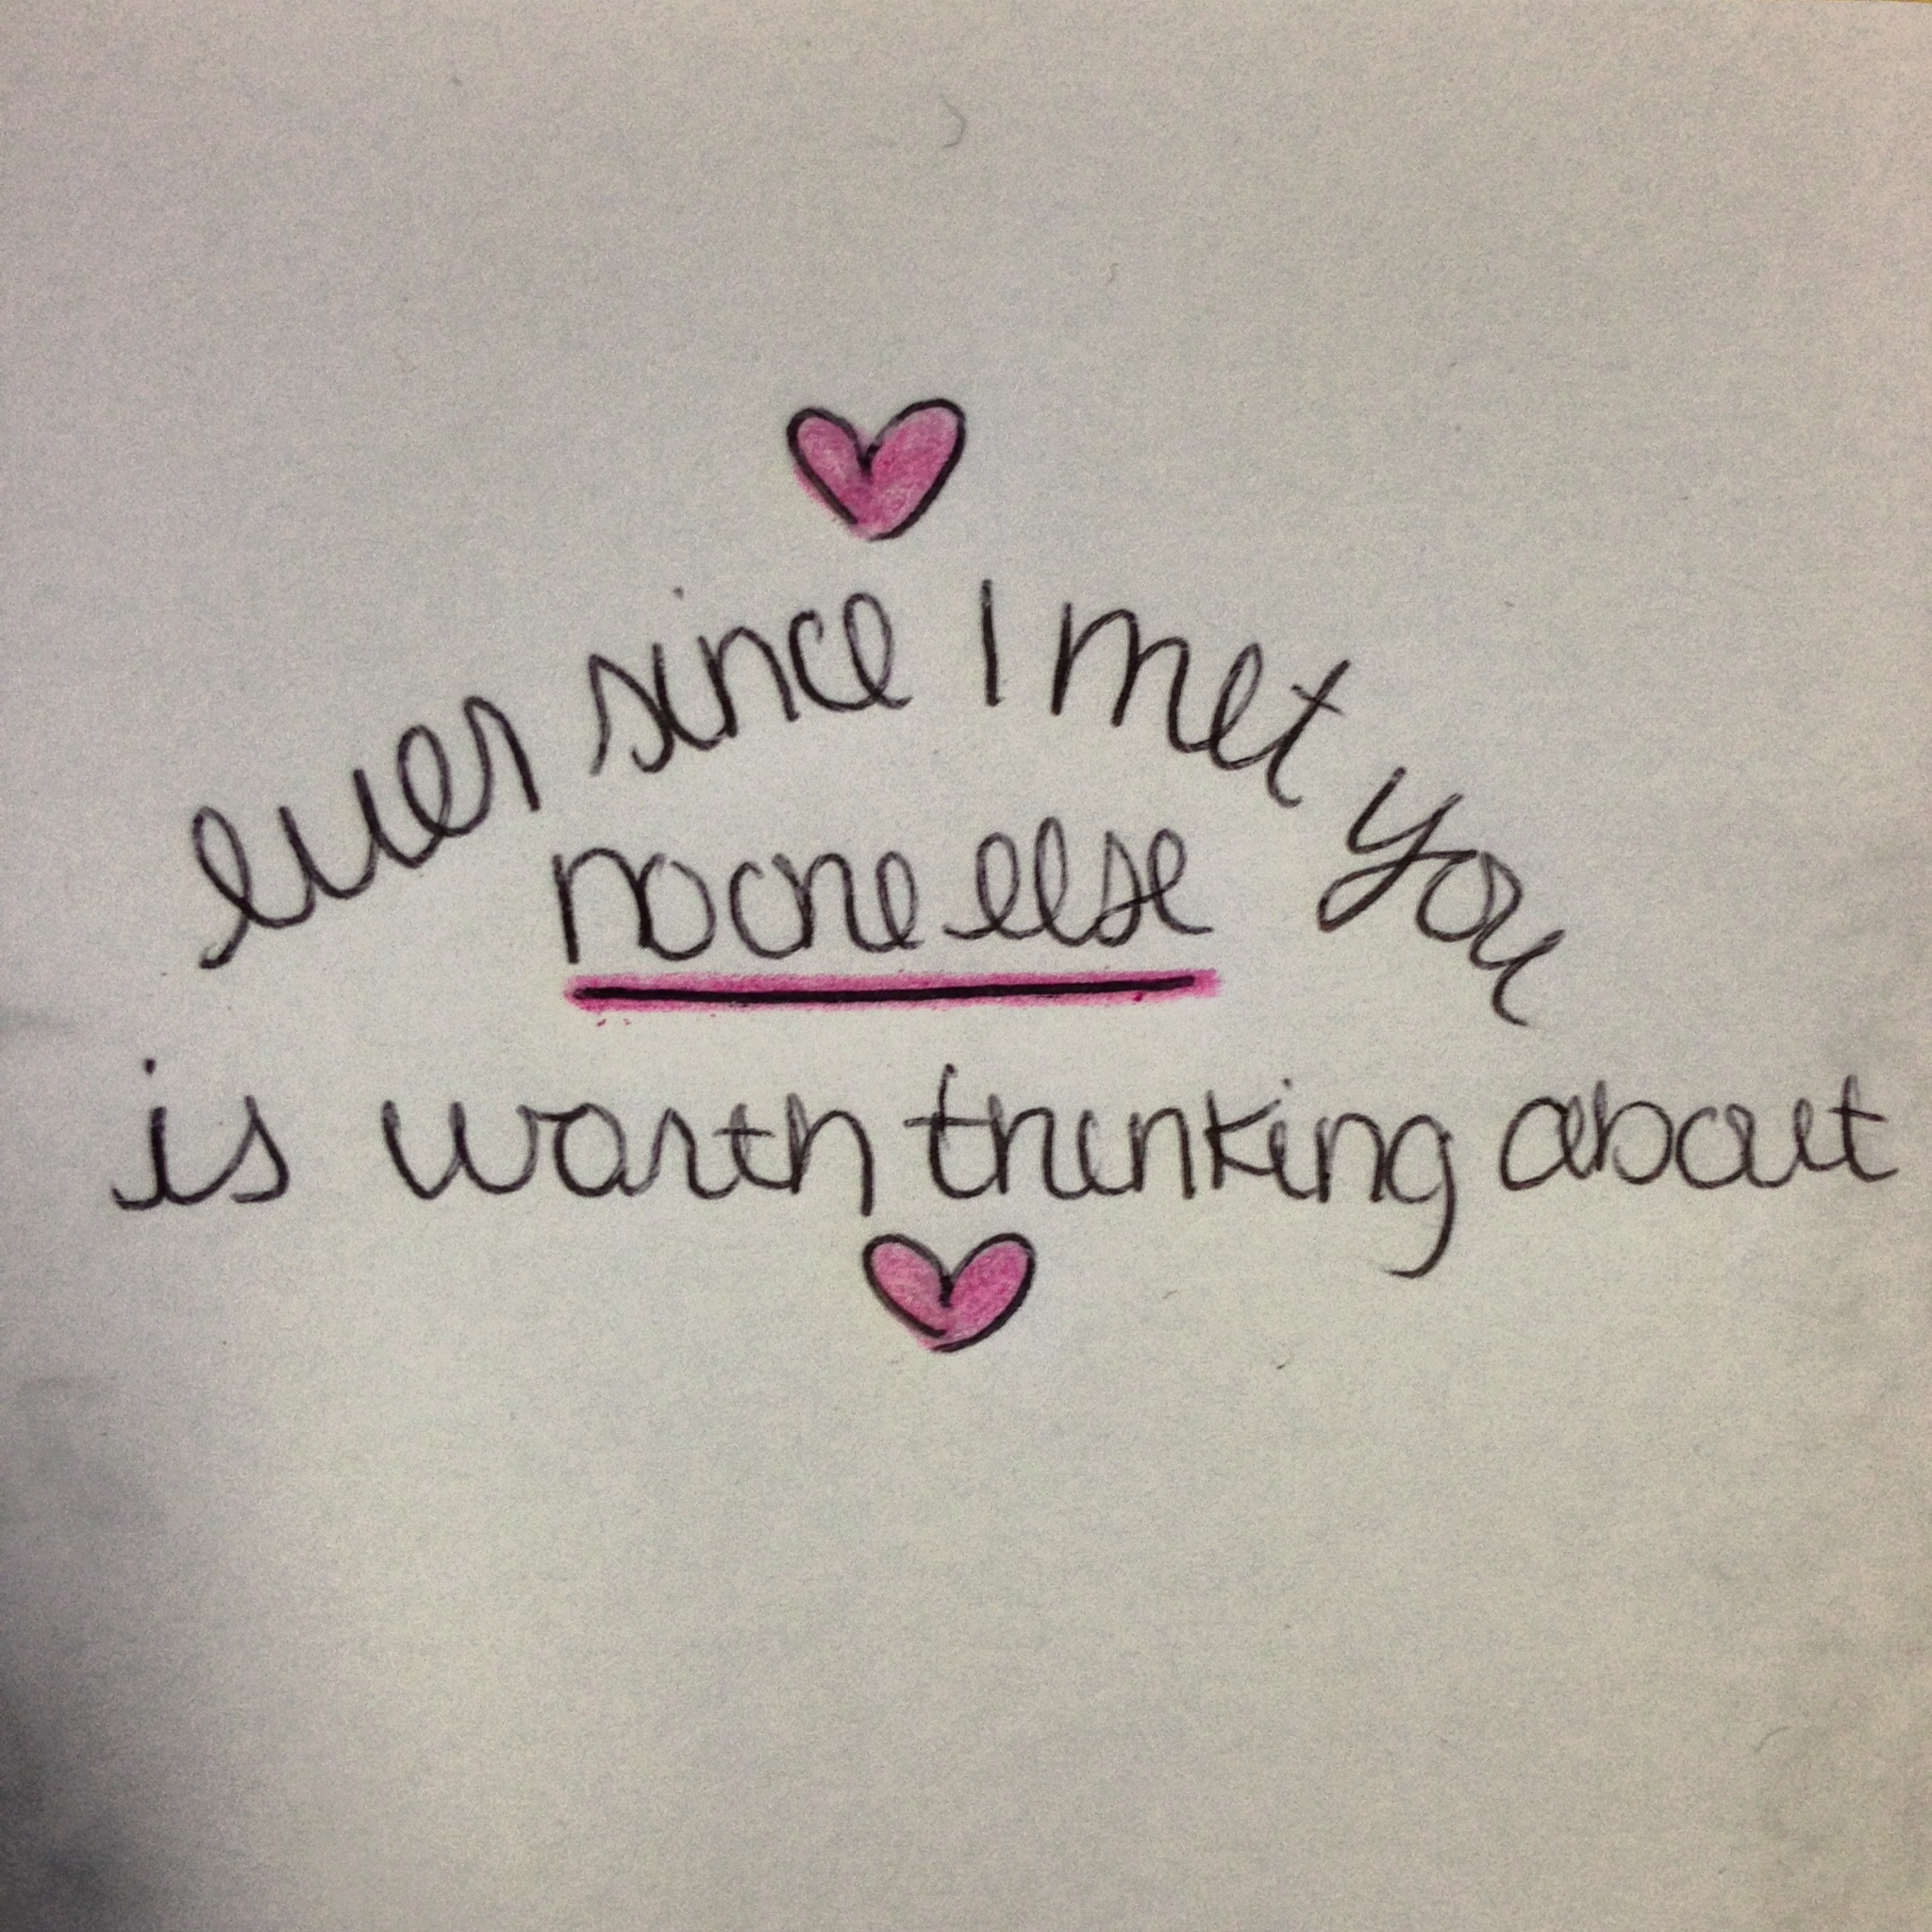 ever since I met you
no one else
is worth thinking about